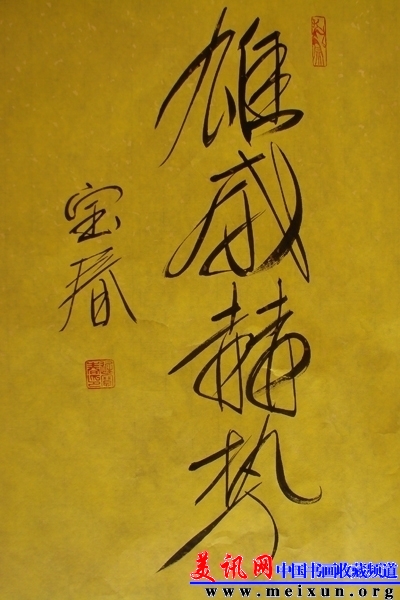 雄威赫势
宝春
美讯网 中国书画收藏频道
www.meixun.org